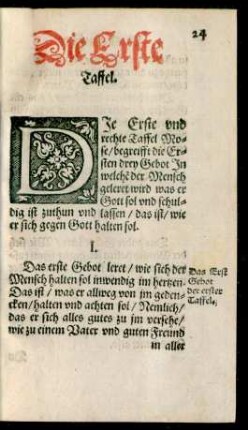 24
Die Erste
Taffel.
DIe Erste vnd
rechte Taffel Mo-
se/begreifft die Er-
sten drey Gebot In
welchē der Mensch
geleret wird was er
Gott sol vnd schul-
dig ist zuthun vnd lassen/das ist/wie
er sich gegen Gott halten sol.
I.
Das erste Gebot leret/wie sich der
Mensch halten sol inwendig im hertzen.
Das ist/was er allweg von jm geden-
cken/halten vnd achten sol/Nemlich/
das er sich alles gutes zu jm versehe/
wie zu einem Vater vnd guten Freund
in aller
Das Erst
Gebot
der ersten
Taffel.